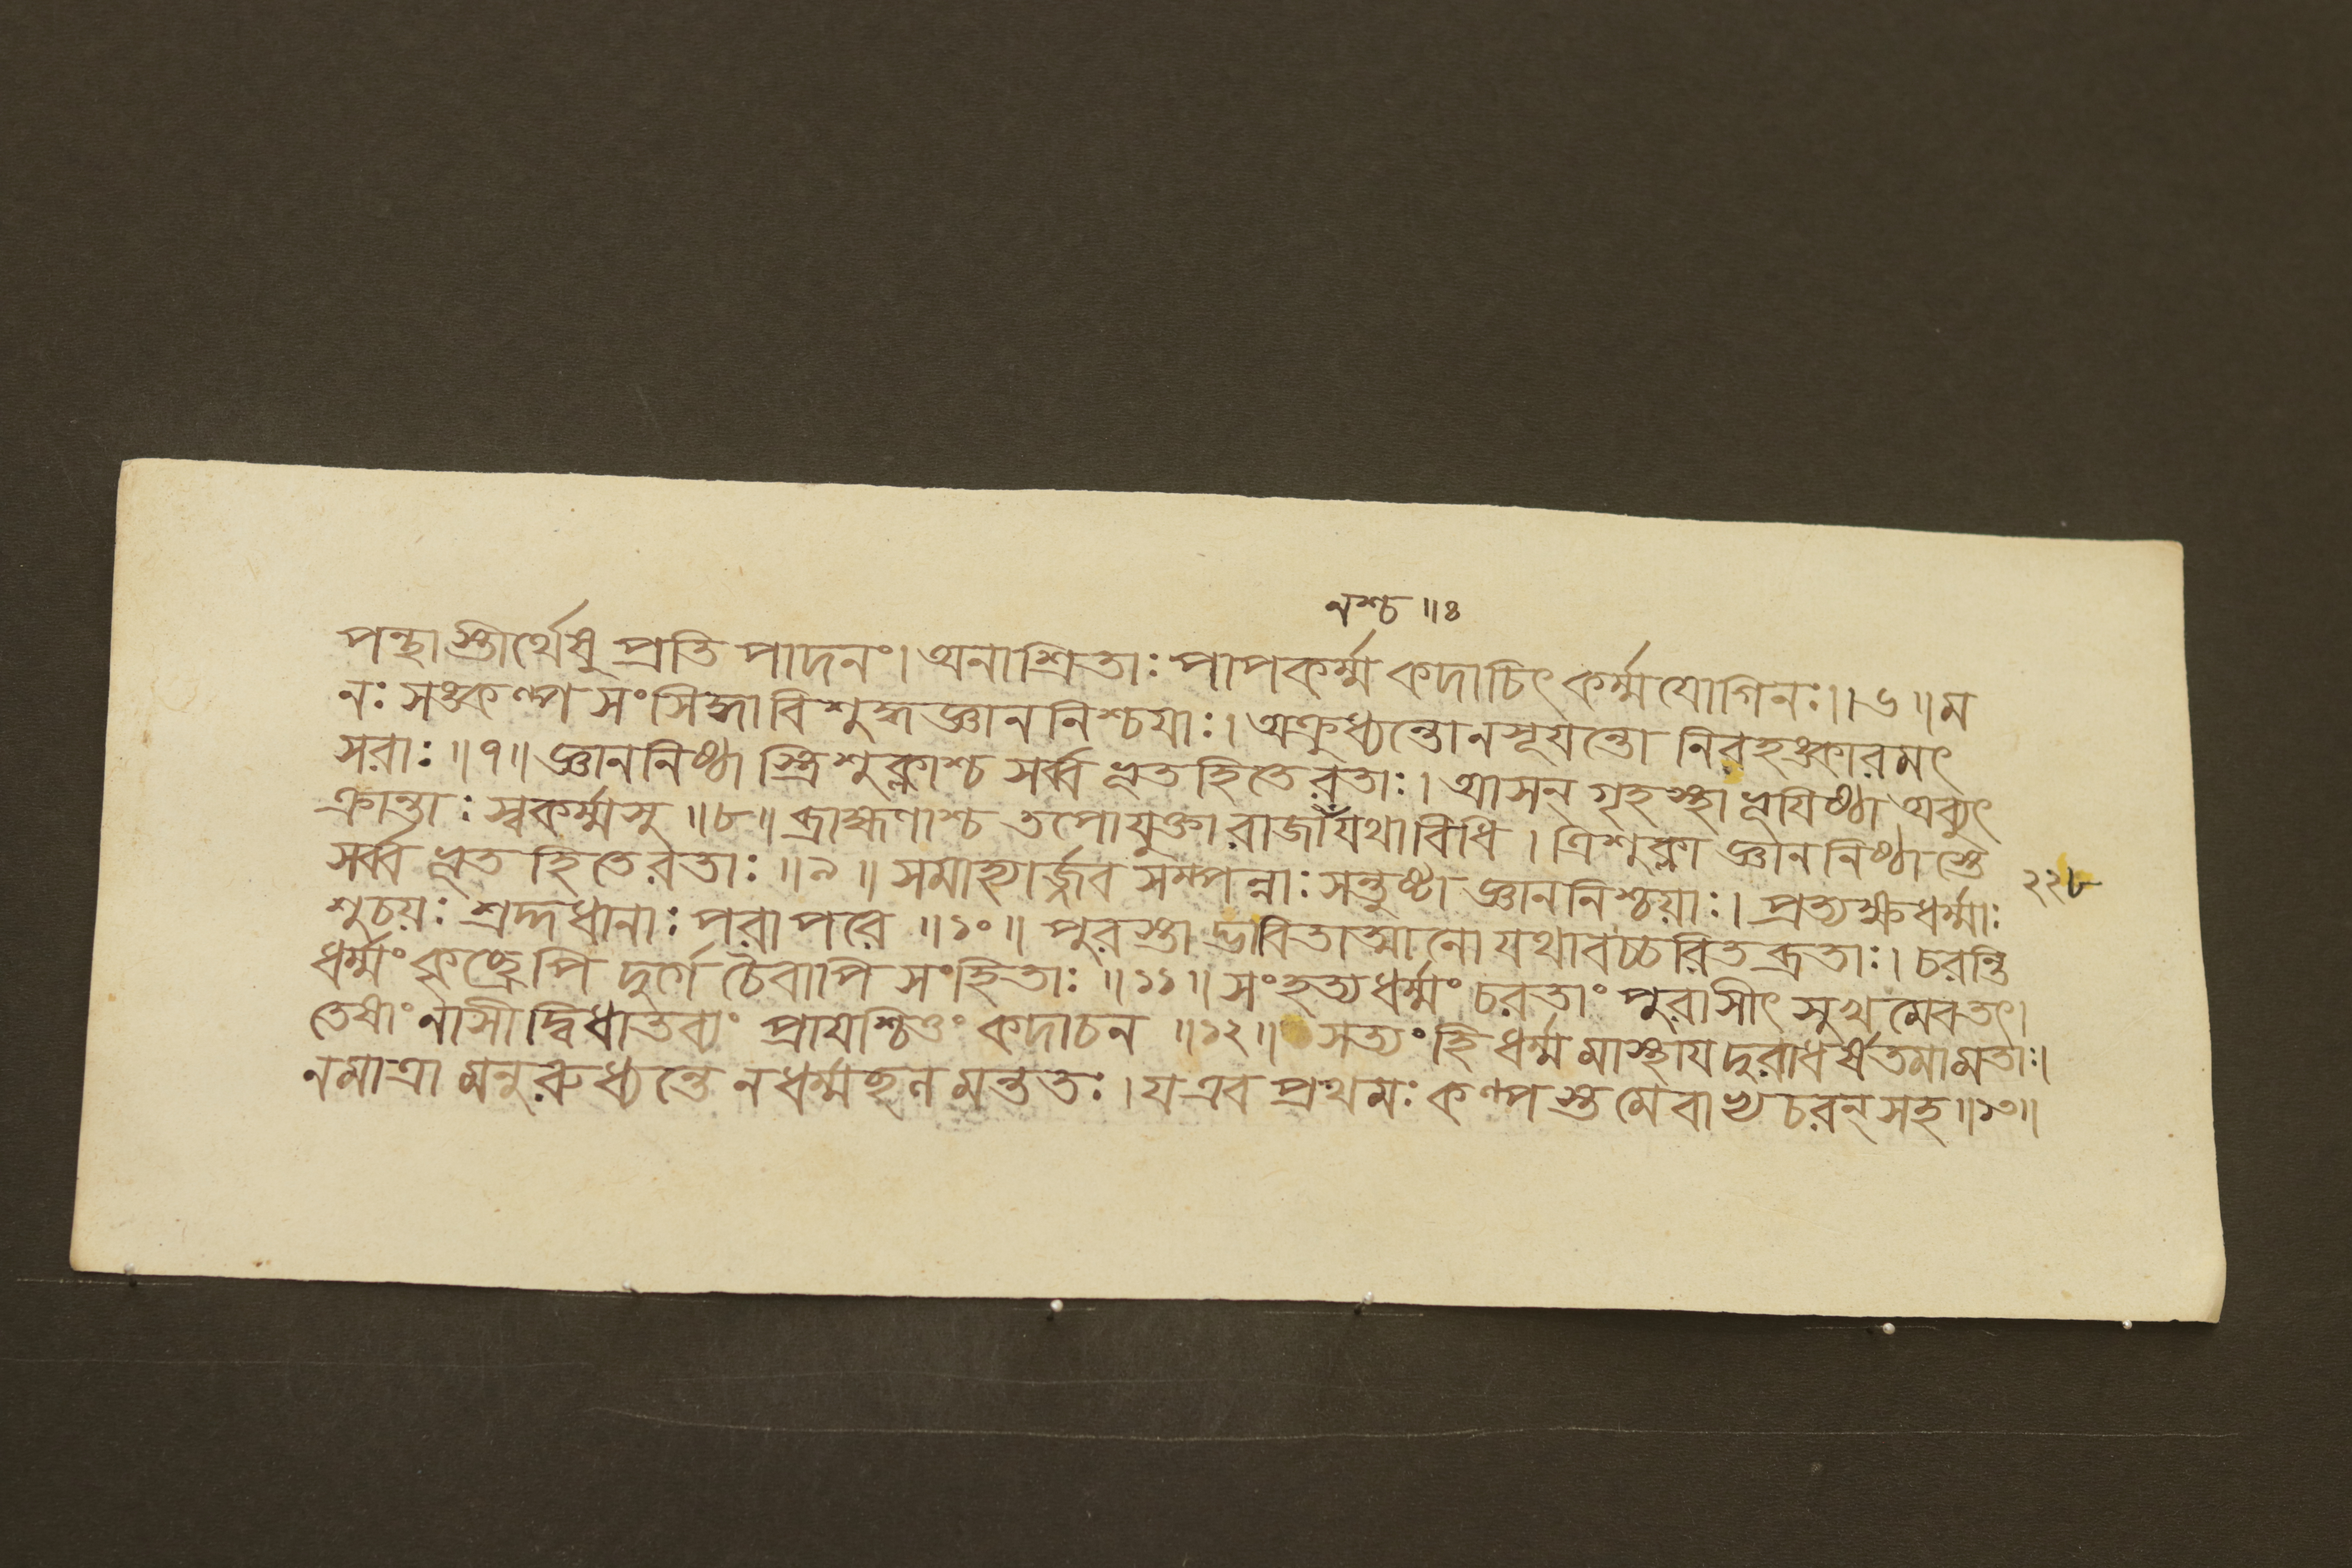 নশ্চ ॥৪
পন্থাস্তীর্থেষু প্রতি পাদনং। অনাশ্রিতাঃ পাপকর্ম্ম কদাচিৎ কর্ম্মযোগিনঃ।।৬॥ম
নঃ সঙ্কল্প সংসিদ্ধাবিশুদ্ধজ্ঞাননিশ্চয়াঃ। অক্রুধ্যন্তোনসূয়ন্তো নিরহঙ্কারমৎ
সরাঃ ॥৭॥ জ্ঞাননিষ্ঠা স্ত্রিশুক্লাশ্চ সর্ব্ব ভূতহিতেরতাঃ। আসন্ গৃহস্থা ভূয়িষ্ঠা অব্যুৎ
ক্রান্তাঃ স্বকর্ম্মসু ॥৮॥ ব্রাহ্মণাশ্চ তপোযুক্তা যথাবিধি । ত্রিশুক্লা জ্ঞাননিষ্ঠাস্তে
সর্ব্ব ভূত হিতেরতাঃ ॥৯॥ সমাহ্যার্জ্জব সম্পন্নাঃ সন্তুষ্টা জ্ঞাননিশ্চয়াঃ। প্রত্যক্ষধর্ম্মাঃ
২২৮
শুচয়ঃ শ্রদ্দধানাঃ পরাপরে ॥১০॥ পুরস্তাদ্ভাবিতাত্মানো যথাবচ্চরিতব্রতাঃ। চরন্তি
ধর্ম্মং কৃচ্ছ্রেপি দুর্গে চৈবাপি সংহিতাঃ ॥১১॥ সংহত্যধর্ম্মং চরতাং পুরাসীৎ সুখমেবতৎ।
তেষাংনাসীদ্বিধাতব্যং প্রায়শ্চিত্তং কদাচন ॥১২॥ সত্যংহিধর্ম্মমাস্থায়দুরাধর্ষতমামতাঃ।
নমাত্রা মনুরুধ্যন্তে নধর্ম্মছন মন্ততঃ। যএব প্রথমঃ কল্পস্তমেবাখ্যচরন্সহ॥১৩॥